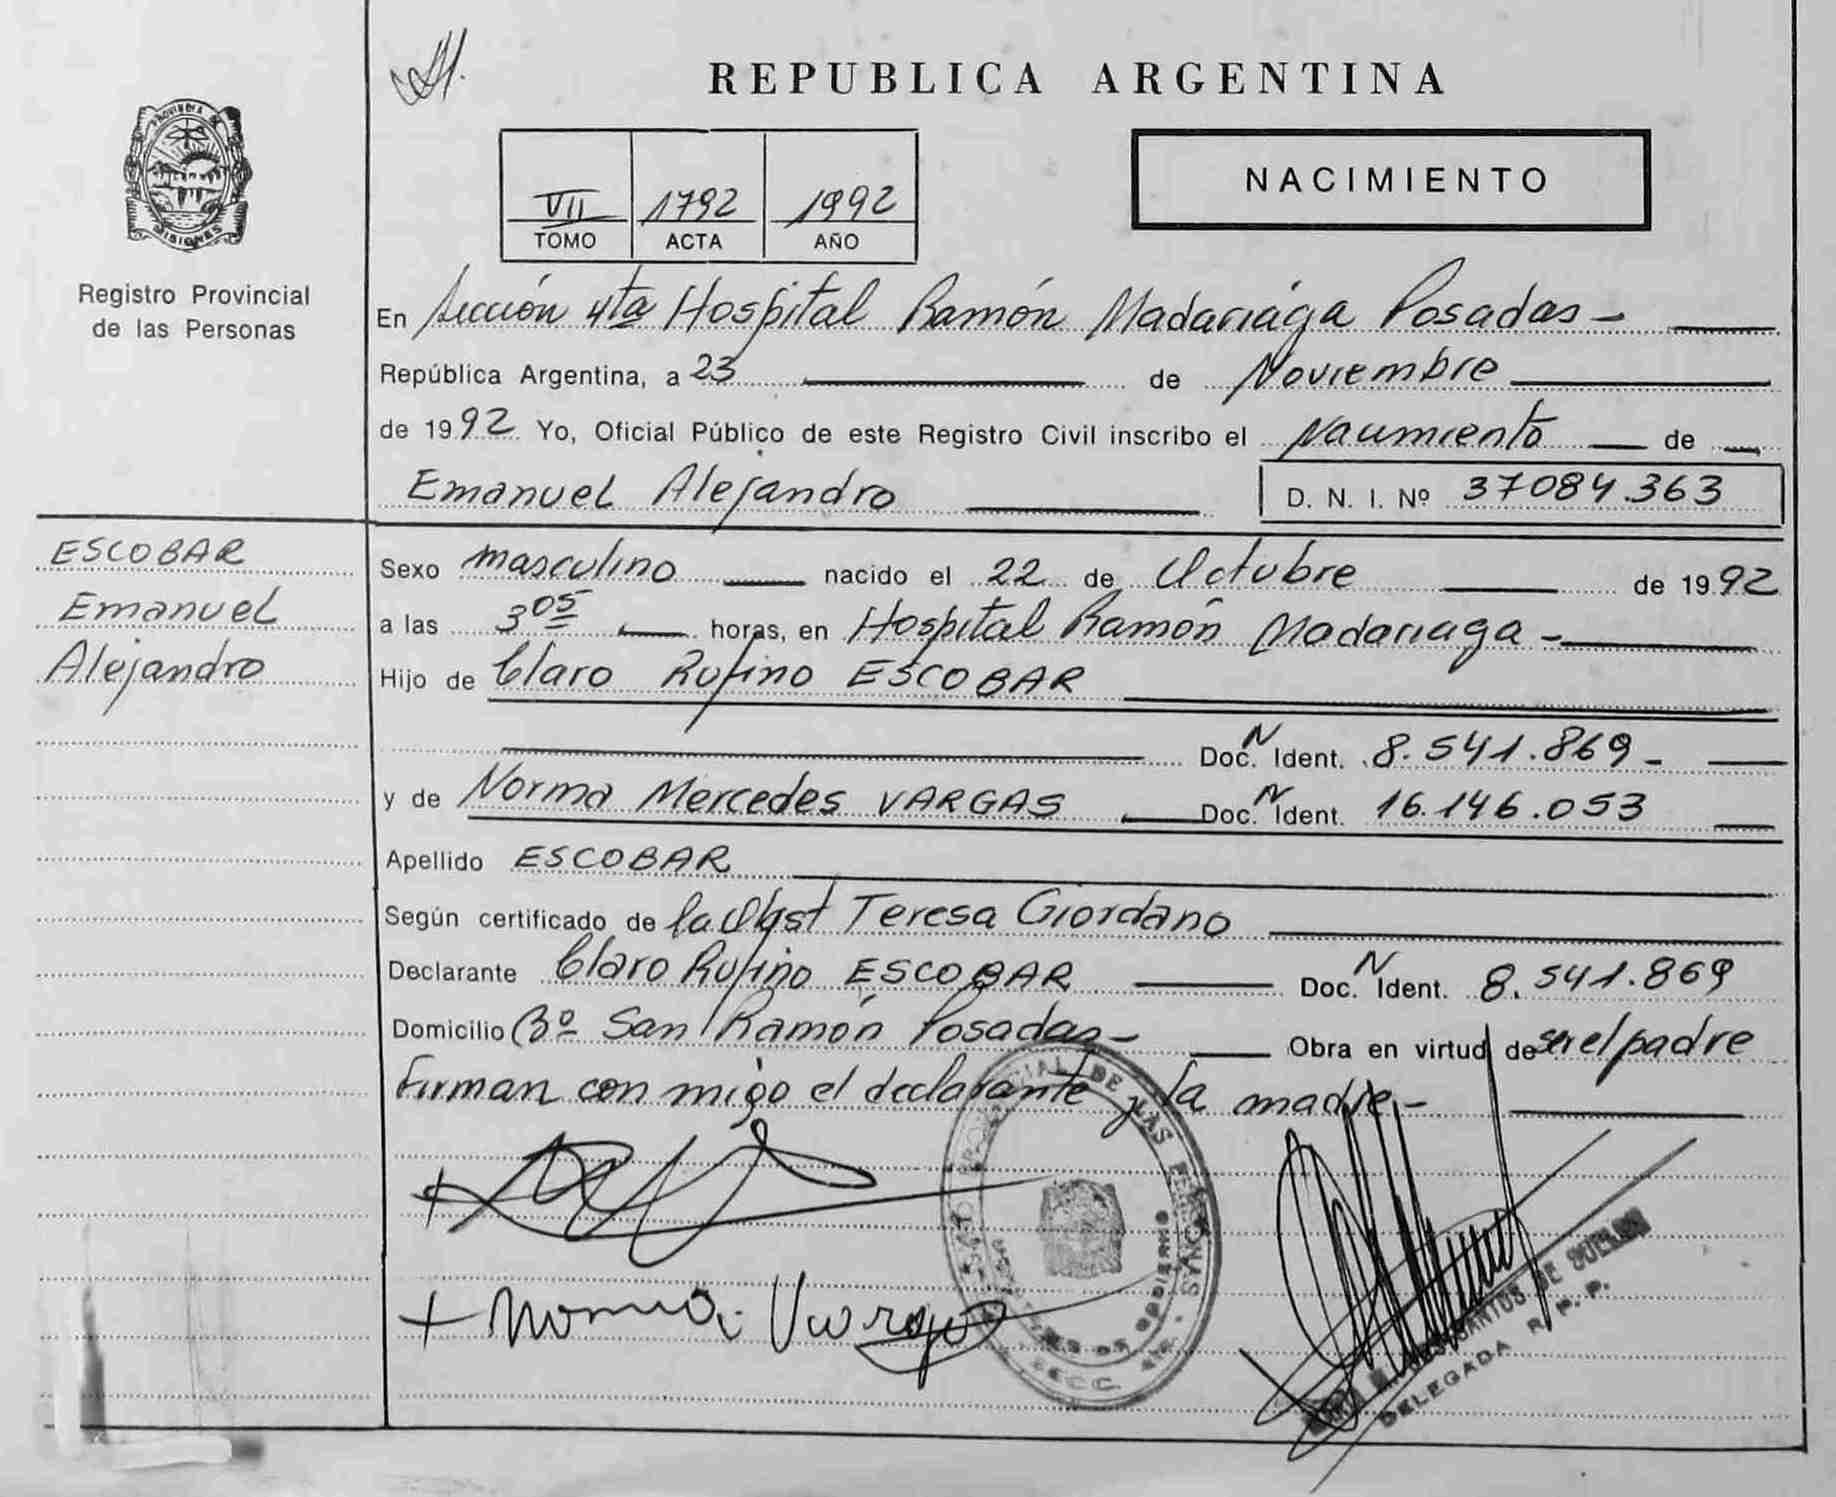 REPUBLICA ARGENTINA
PROVINCIA DE
MISIONES
Registro Provincial
de las Personas
VII 1792 1992
TOMO ACTA AÑO
NACIMIENTO
En Sección 4ta Hospital Ramón Madariaga Posadas -
República Argentina, a 23 de Noviembre
de 1992 Yo, Oficial Público de este Registro Civil inscribo el Nacimiento de
Emanuel Alejandro D. N. I. Nº 37084.363
ESCOBAR
Emanuel
Alejandro
Sexo masculino nacido el 22 de Octubre de 1992
a las 3 05 horas, en Hospital Ramón Madariaga -
Hijo de Claro Rufino ESCOBAR
Doc. N Ident. 8.541.869 -
y de Norma Mercedes VARGAS Doc. N Ident. 16.146.053
Apellido ESCOBAR
Según certificado de la Obst Teresa Giordano
Declarante Claro Rufino ESCOBAR Doc. N Ident. 8.541.869
Domicilio Bº San Ramón Posadas - Obra en virtud de ser el padre
Firman con migo el declarante y la madre -
+
+ Norma Vargas
DE LAS PERSONAS
SANTOS DE
DELEGADA R. P. P.